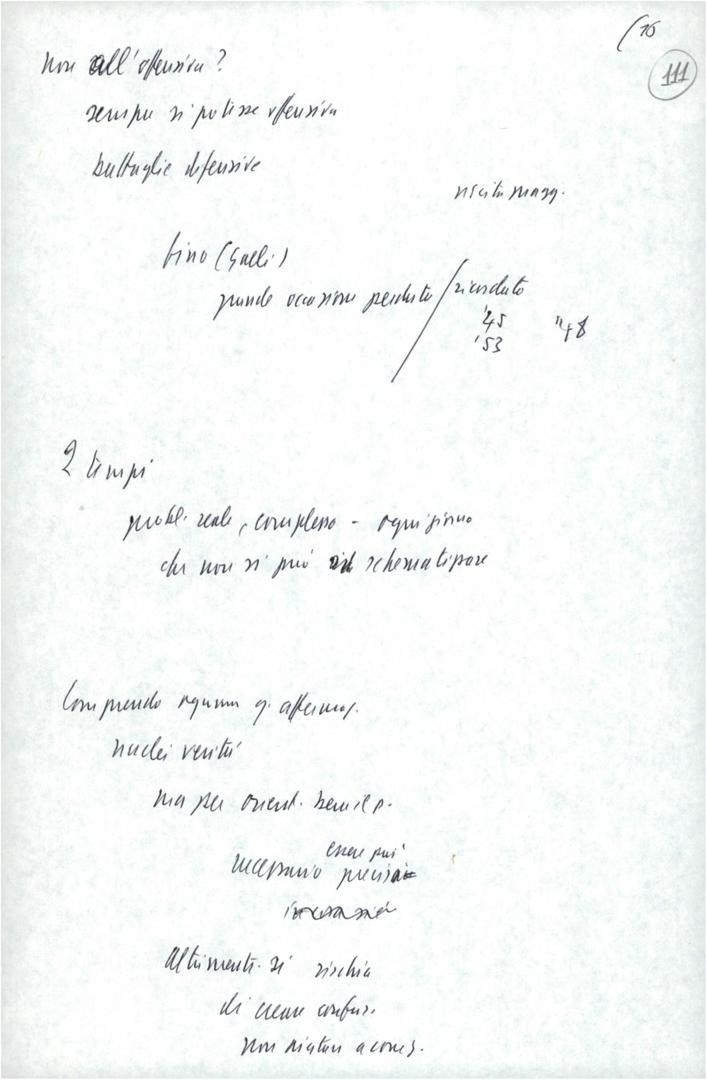 (16
111
non all'offensiva?
sempre si potesse offensiva
battaglie difensive
uscita magg.
fino (Galli)
grande occasione perduta / ricordato
'45 '48
'53
2 tempi
probl. reale, complesso - ogni giorno
che non si può schematizzare
Comprendo ognuna q. affermaz.
nuclei verità
ma per
essere più
necessario precisi
Altrimenti si rischia
di creare confus.
non aiutare a